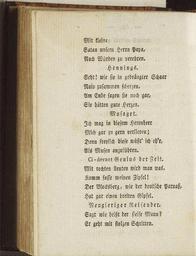 Mit kleine:
Satan unsern Herrn Papa,
Nach Würden zu verehren.
Hennings.
Seht! wie sie in gedrängter Schaar
Naiv zusammen scherzen.
Am Ende sagen sie noch gar,
Sie hätten gute Herzen.
Musaget.
Ich mag in diesem Hexenheer
Mich gar zu gern verlieren;
Denn freilich diese wüßt' ich eh'r,
Als Musen anzuführen.
Ci-devant Genius der Zeit.
Mit rechten Leuten wird man was.
Komm fasse meinen Zipfel!
Der Blocksberg, wie der deutsche Parnaß,
Hat gar einen breiten Gipfel.
Neugieriger Reisender.
Sagt wie heißt der steife Mann?
Er geht mit stolzen Schritten.